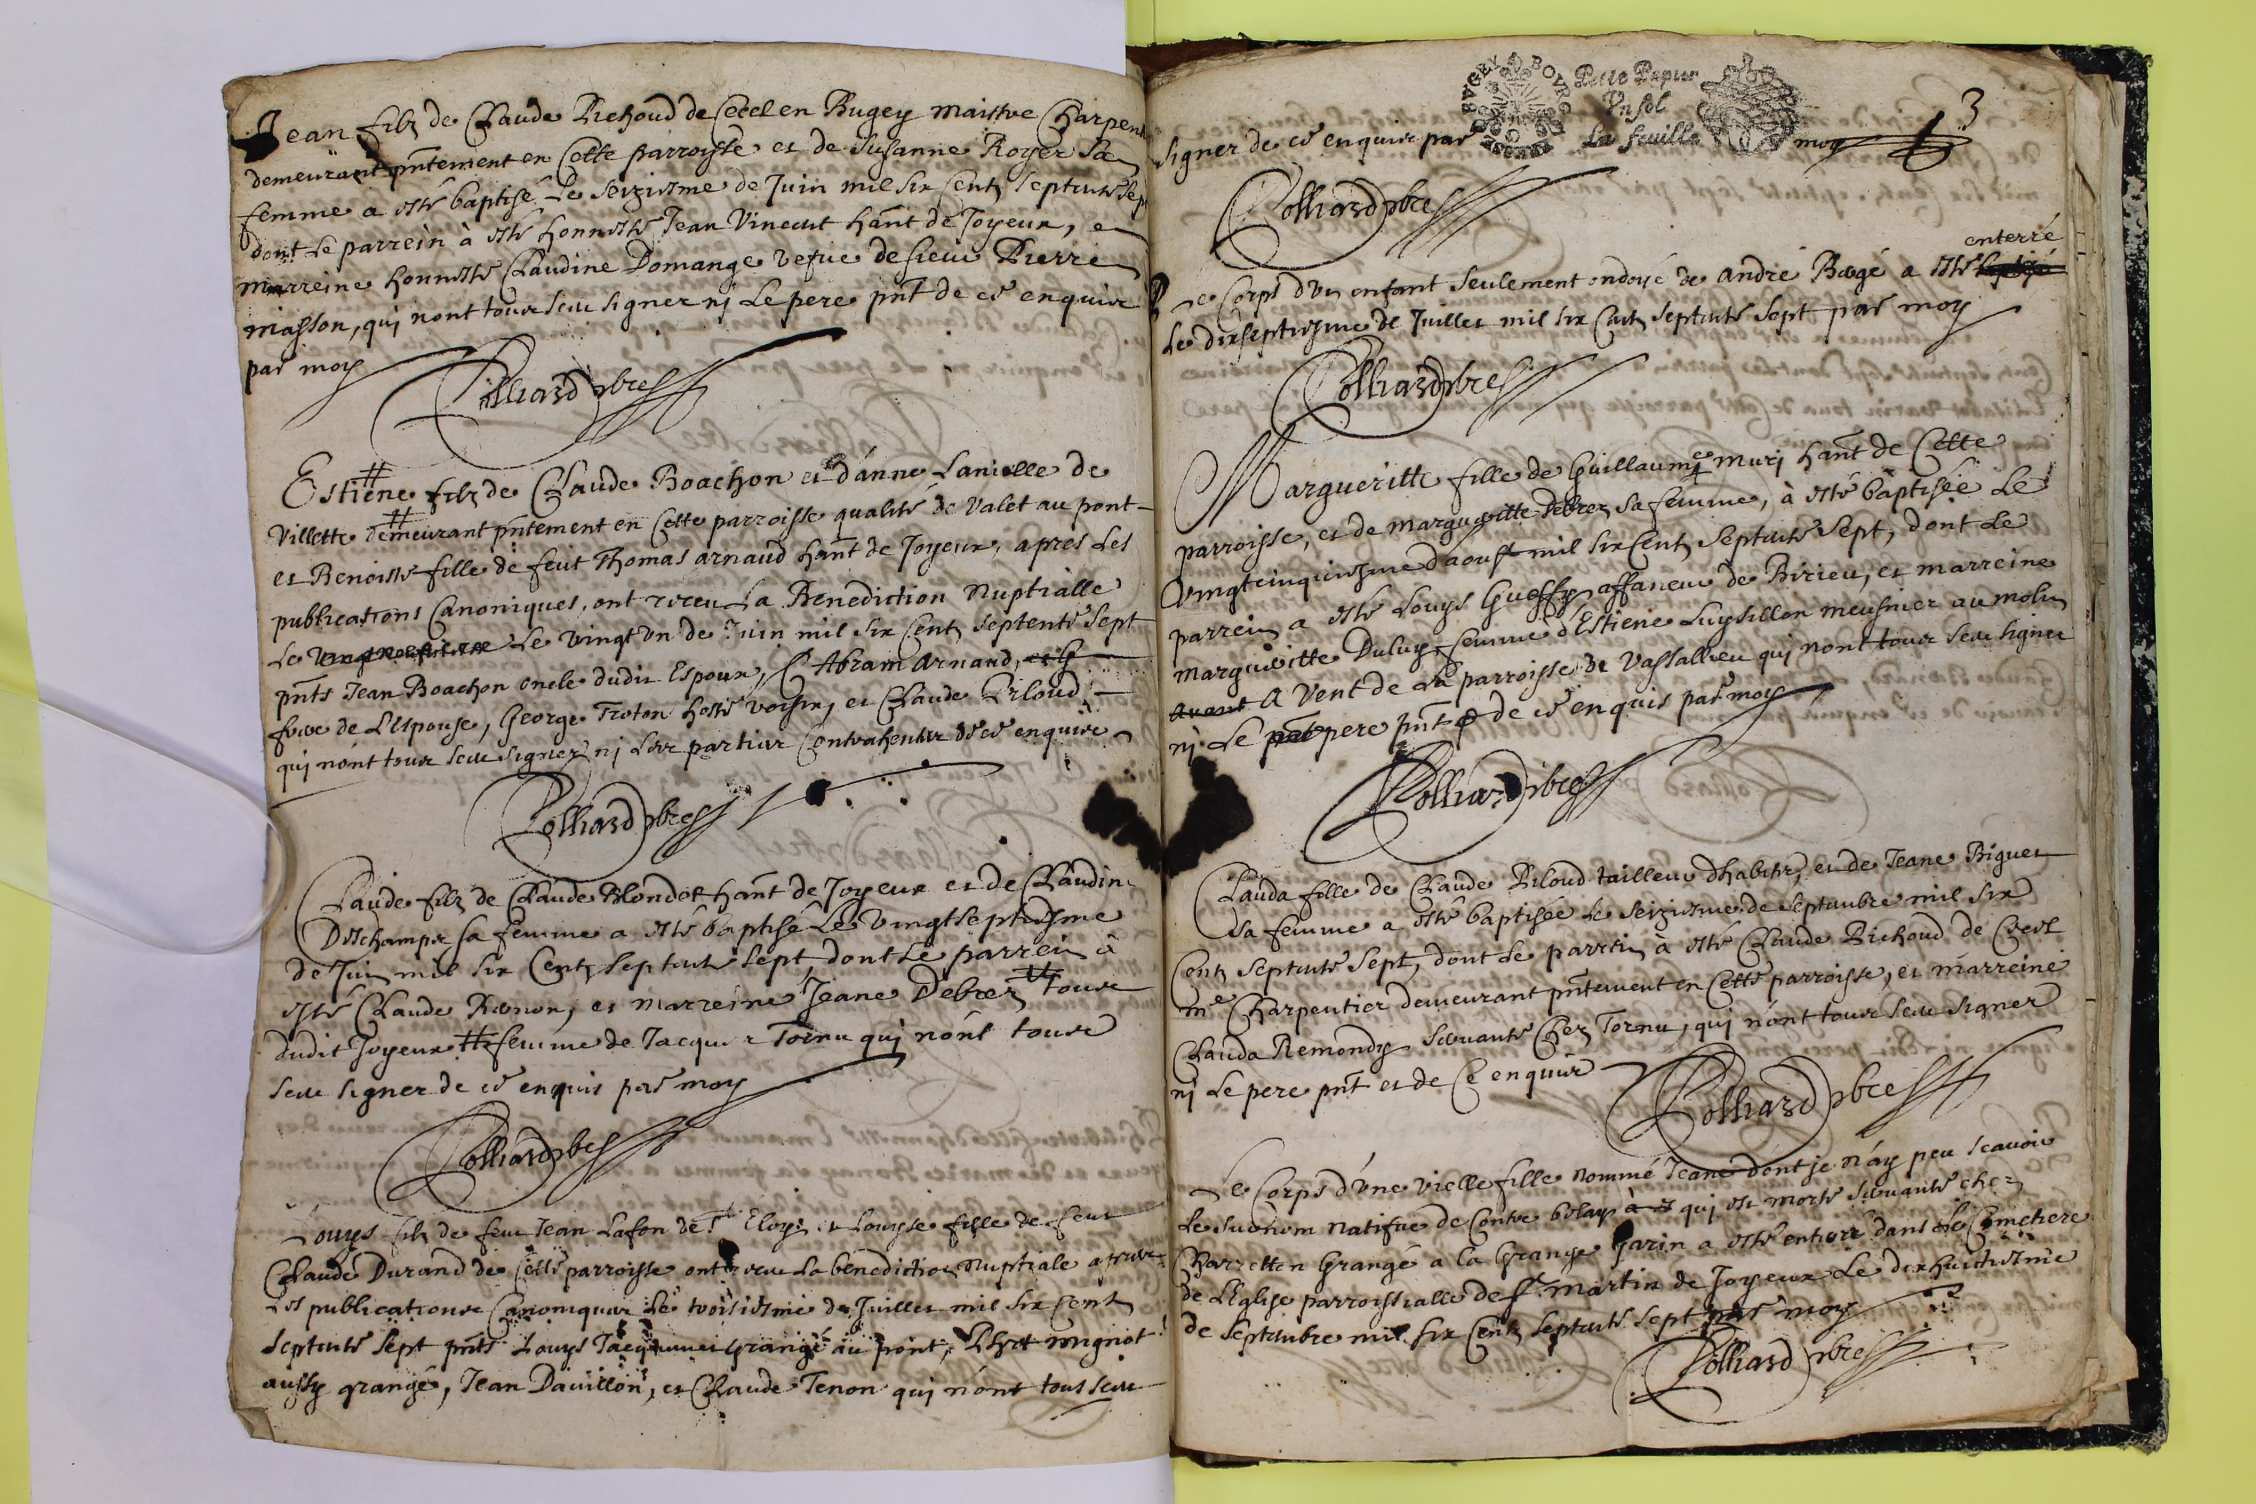 Jean filz de Claude Pichoud de Ceel en Bugey maistre Charpen
demeurant pñtement en Cette parroisse et de Susanne Royer sa
femme a esté baptisé le seiziesme de Juin mil six Cent septante sept
dont le parrein à esté honneste Jean Vincent hãnt de Joyeux, e
marreine honneste Claudine Domange vefue de sieur Pierre
masson, qui nont tous sceu signer nj le pere pñt de ce enquis
par moy
Colliard pbre
Estiene filz de Claude Boachon et d'anne Lanielle de
Villette demeurant pñtement en Cette parroisse qualité de Valet au pont
et Benoiste fille de feut Thomas arnaud hãnt de Joyeux, apres les
publications Canoniques, ont receu La Benediction Nuptialle
Le Le vingt un de Juin mil six Cent septente sept
pñts Jean Boachon oncle dudit Espoux, Abram Arnaud,
frere de L'espouse, George Troton hoste voisin, et Claude Piloud
qui nont tous sceu signer nj les parties Contrahentes de ce enquis
Colliard pbre
Claude filz de Claude Blondet hãnt de Joyeux et de Claudin
Deschamps sa femme a esté baptisé Le vingtseptiesme
de Juin mil six Cent septante sept, dont Le parrein à
esté Claude Renon, et marreine Jeane Debrez tous
dudit Joyeux # femme de Jacques Tornu qui nônt tous
sceu signer de ce enquis par moy
Colliard pbre
Louys filz de feu Jean Lafon de St Eloy, et Louyse fille de feut
Claude Durand de Cette parroisse ont receu La benediction nuptiale apres
Les publications Canoniques Le troisiesme de Juillet mil six Cent
septante sept pñts Louys Jacquemet Grangé au pont, mignot
aussy grangé, Jean Dauillon, et Claude Tenon qui nônt tous sceu
BVGEY BOVRG
Petit Papier
Un sol
La feuille
3
signer de ce enquis par moy
Colliard pbre
Le Corps d'un enfant seulement ondoyé de André Bogé a esté baptisé enterré
Le dixseptiesme de Juillet mil six Cent septante sept par moy
Colliard pbre
Margueritte fille de Guillaume murj hãnt de Cette
parroisse, et de margueritte Debrez sa femme, à esté bâptisée Le
vingtcinquiesme d'aoust mil six Cent septante sept, dont Le
parrein a esté Louys Guessy affaneur de Birieu, et marreine
margueritte Duluy femme d'Estiene Luysillon meusnier au molin
avant A Vent de La parroisse de Vassallieu qui nont tous sceu signer
nj Le pere pñt de ce enquis par moy
Colliard pbre
Clauda fille de Claude Piloud tailleur d'habits, et de Jeane Biguet
sa femme a esté baptisée Le seiziesme de septembre mil six
Cent septante sept, dont Le parrein à esté Claude Pichoud de Ceel
me Charpentier demeurant pñtement en Cette parroisse, et marreine
Clauda Remondy seruante Chez Tornu, qui nónt tous sceu signer
nj Le pere pñt et de Ce enquis
Colliard pbre
Le Corps d'une vielle fille nommé Jeane dont je n'ay peu scauoir
Le surnom natifue de qui est morte seruante chez
Grangé a la Grange Garin a esté enterré dans Le Cymetiere
de L'Eglise parroissialle de St martin de Joyeux Le dixhuictiesme
de septembre mil six Cent septante sept par moy
Colliard pbre